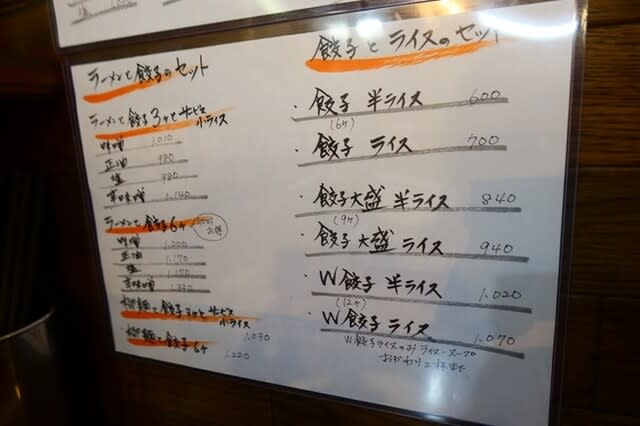 ラーメンと餃子のセット
ラーメンと餃子3ケとサービス
小ライス
味噌 1.010
正油 980
塩 980
辛味噌 1.140
ラーメンと餃子6ケ
味噌 1.200
正油 1.170
塩 1.170
辛味噌 1.330
餃子3ケとサービス
小ライス
1.030
餃子6ケ
1.220
餃子とライスのセット
・餃子 半ライス 600
(6ケ)
・餃子 ライス 700
・餃子大盛 半ライス 840
(9ケ)
・餃子 大盛 ライス 940
・W餃子 半ライス 1.020
(12ケ)
・W餃子 ライス 1.070
W餃子ライスのみライス・スープ
おかわり2杯まで